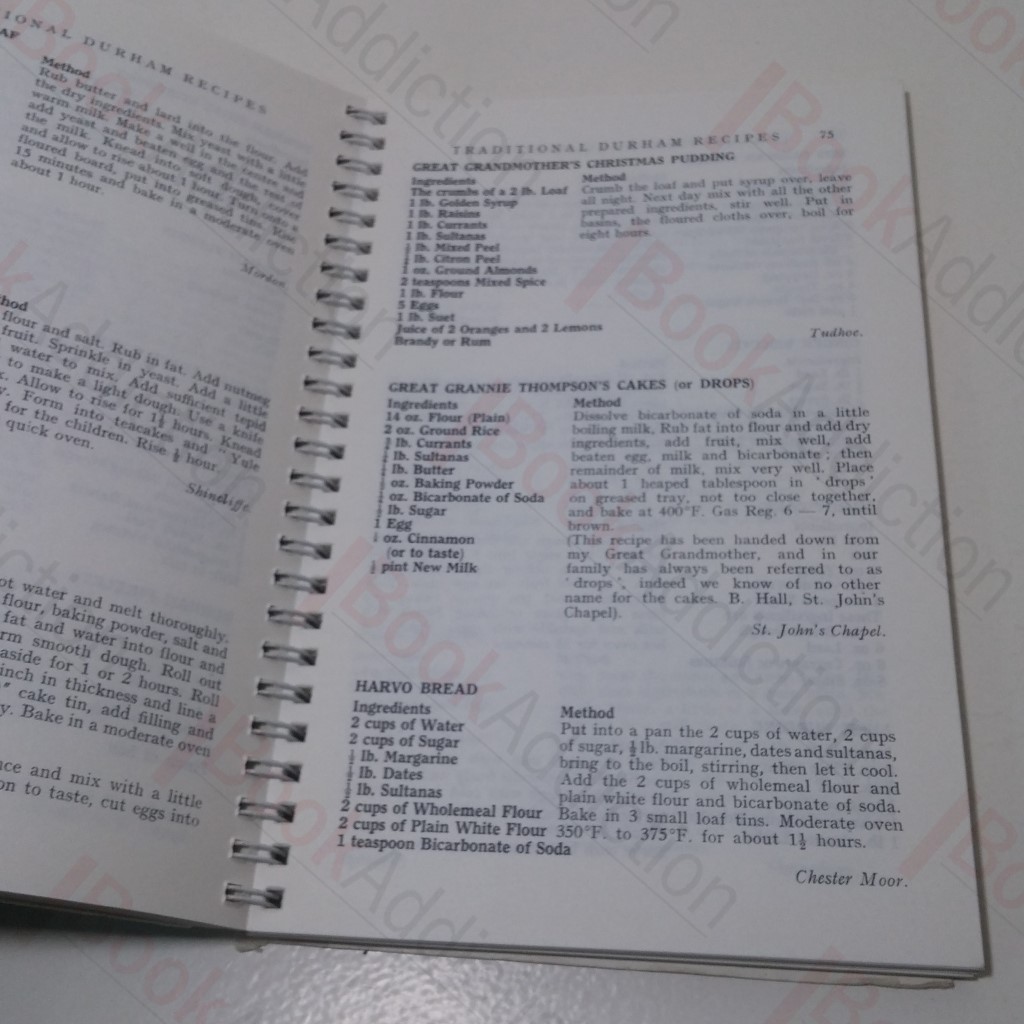 IONAL DURHAM RECIPES
AF
Method
Rub butter and lard into the flour. Add
the dry ingredients. Mix yeast with a little
warm milk. Make a well in the centre and
add yeast and beaten egg and the rest of
the milk. Knead into soft dough, cover
and allow to rise about 1 hour. Turn onto a
floured board, put into greased tins. Rise
15 minutes and bake in a moderate oven
about 1 hour.
Morden.
hod
flour and salt. Rub in fat. Add nutmeg
fruit. Sprinkle in yeast. Add a little
water to mix. Add sufficient tepid
to make a light dough. Use a knife
. Allow to rise for 1½ hours. Knead
y. Form into teacakes and "Yule
for the children. Rise ½ hour.
quick oven.
Shincliffe.
ot water and melt thoroughly.
flour, baking powder, salt and
fat and water into flour and
rm smooth dough. Roll out
aside for 1 or 2 hours. Roll
inch in thickness and line a
" cake tin, add filling and
y. Bake in a moderate oven
nce and mix with a little
on to taste, cut eggs into
TRADITIONAL DURHAM RECIPES 75
GREAT GRANDMOTHER'S CHRISTMAS PUDDING
Ingredients
The crumbs of a 2 lb. Loaf
1 lb. Golden Syrup
1 lb. Raisins
1 lb. Currants
1 lb. Sultanas
lb. Mixed Peel
lb. Citron Peel
1 oz. Ground Almonds
2 teaspoons Mixed Spice
1 lb. Flour
5 Eggs
1 lb. Suet
Juice of 2 Oranges and 2 Lemons
Brandy or Rum
Method
Crumb the loaf and put syrup over, leave
all night. Next day mix with all the other
prepared ingredients, stir well. Put in
basins, the floured cloths over, boil for
eight hours.
Tudhoe.
GREAT GRANNIE THOMPSON'S CAKES (or DROPS)
Ingredients
14 oz. Flour (Plain)
2 oz. Ground Rice
lb. Currants
lb. Sultanas
lb. Butter
oz. Baking Powder
oz. Bicarbonate of Soda
lb. Sugar
1 Egg
oz. Cinnamon
(or to taste)
pint New Milk
Method
Dissolve bicarbonate of soda in a little
boiling milk, Rub fat into flour and add dry
ingredients, add fruit, mix well, add
beaten egg, milk and bicarbonate; then
remainder of milk, mix very well. Place
about 1 heaped tablespoon in 'drops'
on greased tray, not too close together,
and bake at 400°F. Gas Reg. 6 — 7, until
brown.
(This recipe has been handed down from
my Great Grandmother, and in our
family has always been referred to as
'drops', indeed we know of no other
name for the cakes. B. Hall, St. John's
Chapel).
St. John's Chapel.
HARVO BREAD
Ingredients
2 cups of Water
2 cups of Sugar
lb. Margarine
lb. Dates
lb. Sultanas
2 cups of Wholemeal Flour
2 cups of Plain White Flour
1 teaspoon Bicarbonate of Soda
Method
Put into a pan the 2 cups of water, 2 cups
of sugar, ½lb. margarine, dates and sultanas,
bring to the boil, stirring, then let it cool.
Add the 2 cups of wholemeal flour and
plain white flour and bicarbonate of soda.
Bake in 3 small loaf tins. Moderate oven
350°F. to 375°F. for about 1½ hours.
Chester Moor.
BookAddiction